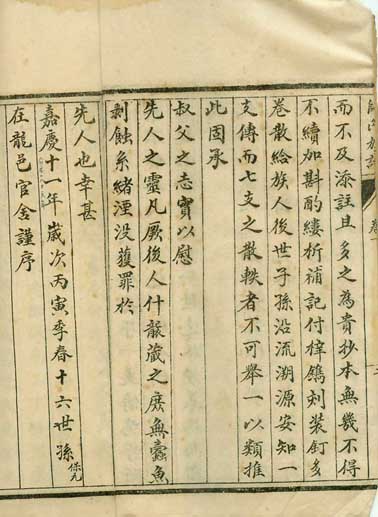 而不及添註且多之為貴抄本無幾不得
不續加斟酌縷析補記付梓鐫刻裝釘多
卷散給族人後世子孫沿流溯源安知一
支傳而七支之散軼者不可舉一以類推
此固承
叔父之志實以慰
先人之靈凡厥後人什襲藏之庶無蠹魚
剝蝕系緒湮没獲罪於
先人也幸甚
嘉慶十一年歲次丙寅季春十六世孫
在龍邑官舍謹序